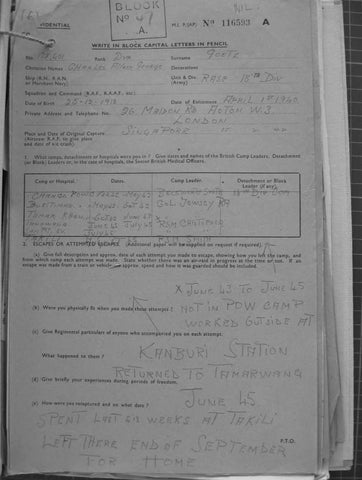 NIL.
BLOCK
No 41
A.
IDENTIAL
M.I. 9/JAP/ No 116593 A
WRITE IN BLOCK CAPITAL LETTERS IN PENCIL
No. Rank DVR Surname GOETZ
Christian Names CHARLES GEORGE Decorations
Ship (R.N., R.A.N. or Merchant Navy) Unit & Div (Army) RASC 18TH DIV
Squadron and Command (R.A.F., R.A.A.F., etc.)
Date of Birth 25-12-1918 Date of Enlistment APRIL 1ST 1940
Private Address and Telephone No. 26 MALDON RD ACTON W.3.
LONDON
Place and Date of Original Capture SINGAPORE 15 2 42
(Aircrew R.A.F. to give place and date of air crash)
1. What camps, detachments or hospitals were you in? Give dates and names of the British Camp Leaders, Detachment or Block Leaders or, in the case of hospitals, the Senior British Medical Officers.
Camp or Hospital. Dates. Camp Leader. Detachment or Block Leader (if any).
CHANGI
BUKITIMAH
TAMARKAN
JUNE 45 JULY 45 RSM
RSM SMITH
2. ESCAPES OR ATTEMPTED ESCAPES. (Additional paper will be supplied on request if required).
(a) Give full description and approx. date of each attempt you made to escape, showing how you left the camp, and from which camp each attempt was made. State whether there was an air-raid in progress at the time or not. If an escape was made from a train or vehicle approx. speed and how it was guarded should be included.
X JUNE 43 TO JUNE 45
(b) Were you physically fit when you made these attempts? NOT IN POW CAMP
WORKED OUTSIDE AT
(c) Give Regimental particulars of anyone who accompanied you on each attempt.
KANBURI STATION
What happened to them?
RETURNED TO TAMARWANG
(d) Give briefly your experiences during periods of freedom.
JUNE 45
(e) How were you recaptured and on what date?
SPENT LAST 6 WEEKS AT TAKILI
LEFT THERE END OF SEPTEMBER
P.T.O.
FOR HOME